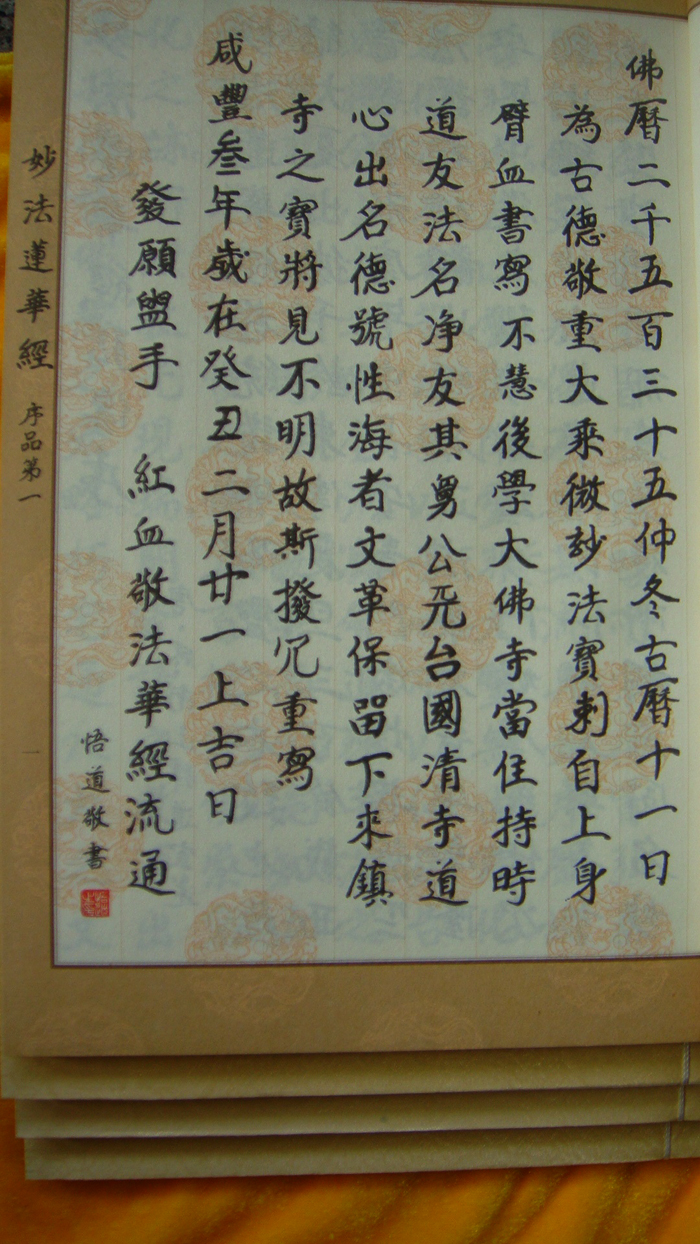 佛曆二千五百三十五仲冬古曆十一日
為古德敬重大乘微妙法寶刺自上身
臂血書寫不慧後學大佛寺當住持時
道友法名净友其舅公天台國清寺道
心出名德號性海者文革保留下來鎮
寺之寶將見不明故斯撥冗重寫
咸豐叁年歲在癸丑二月廿一上吉日
發願盥手 紅血敬法華經流通
悟道敬書
妙法蓮華經 序品第一
一